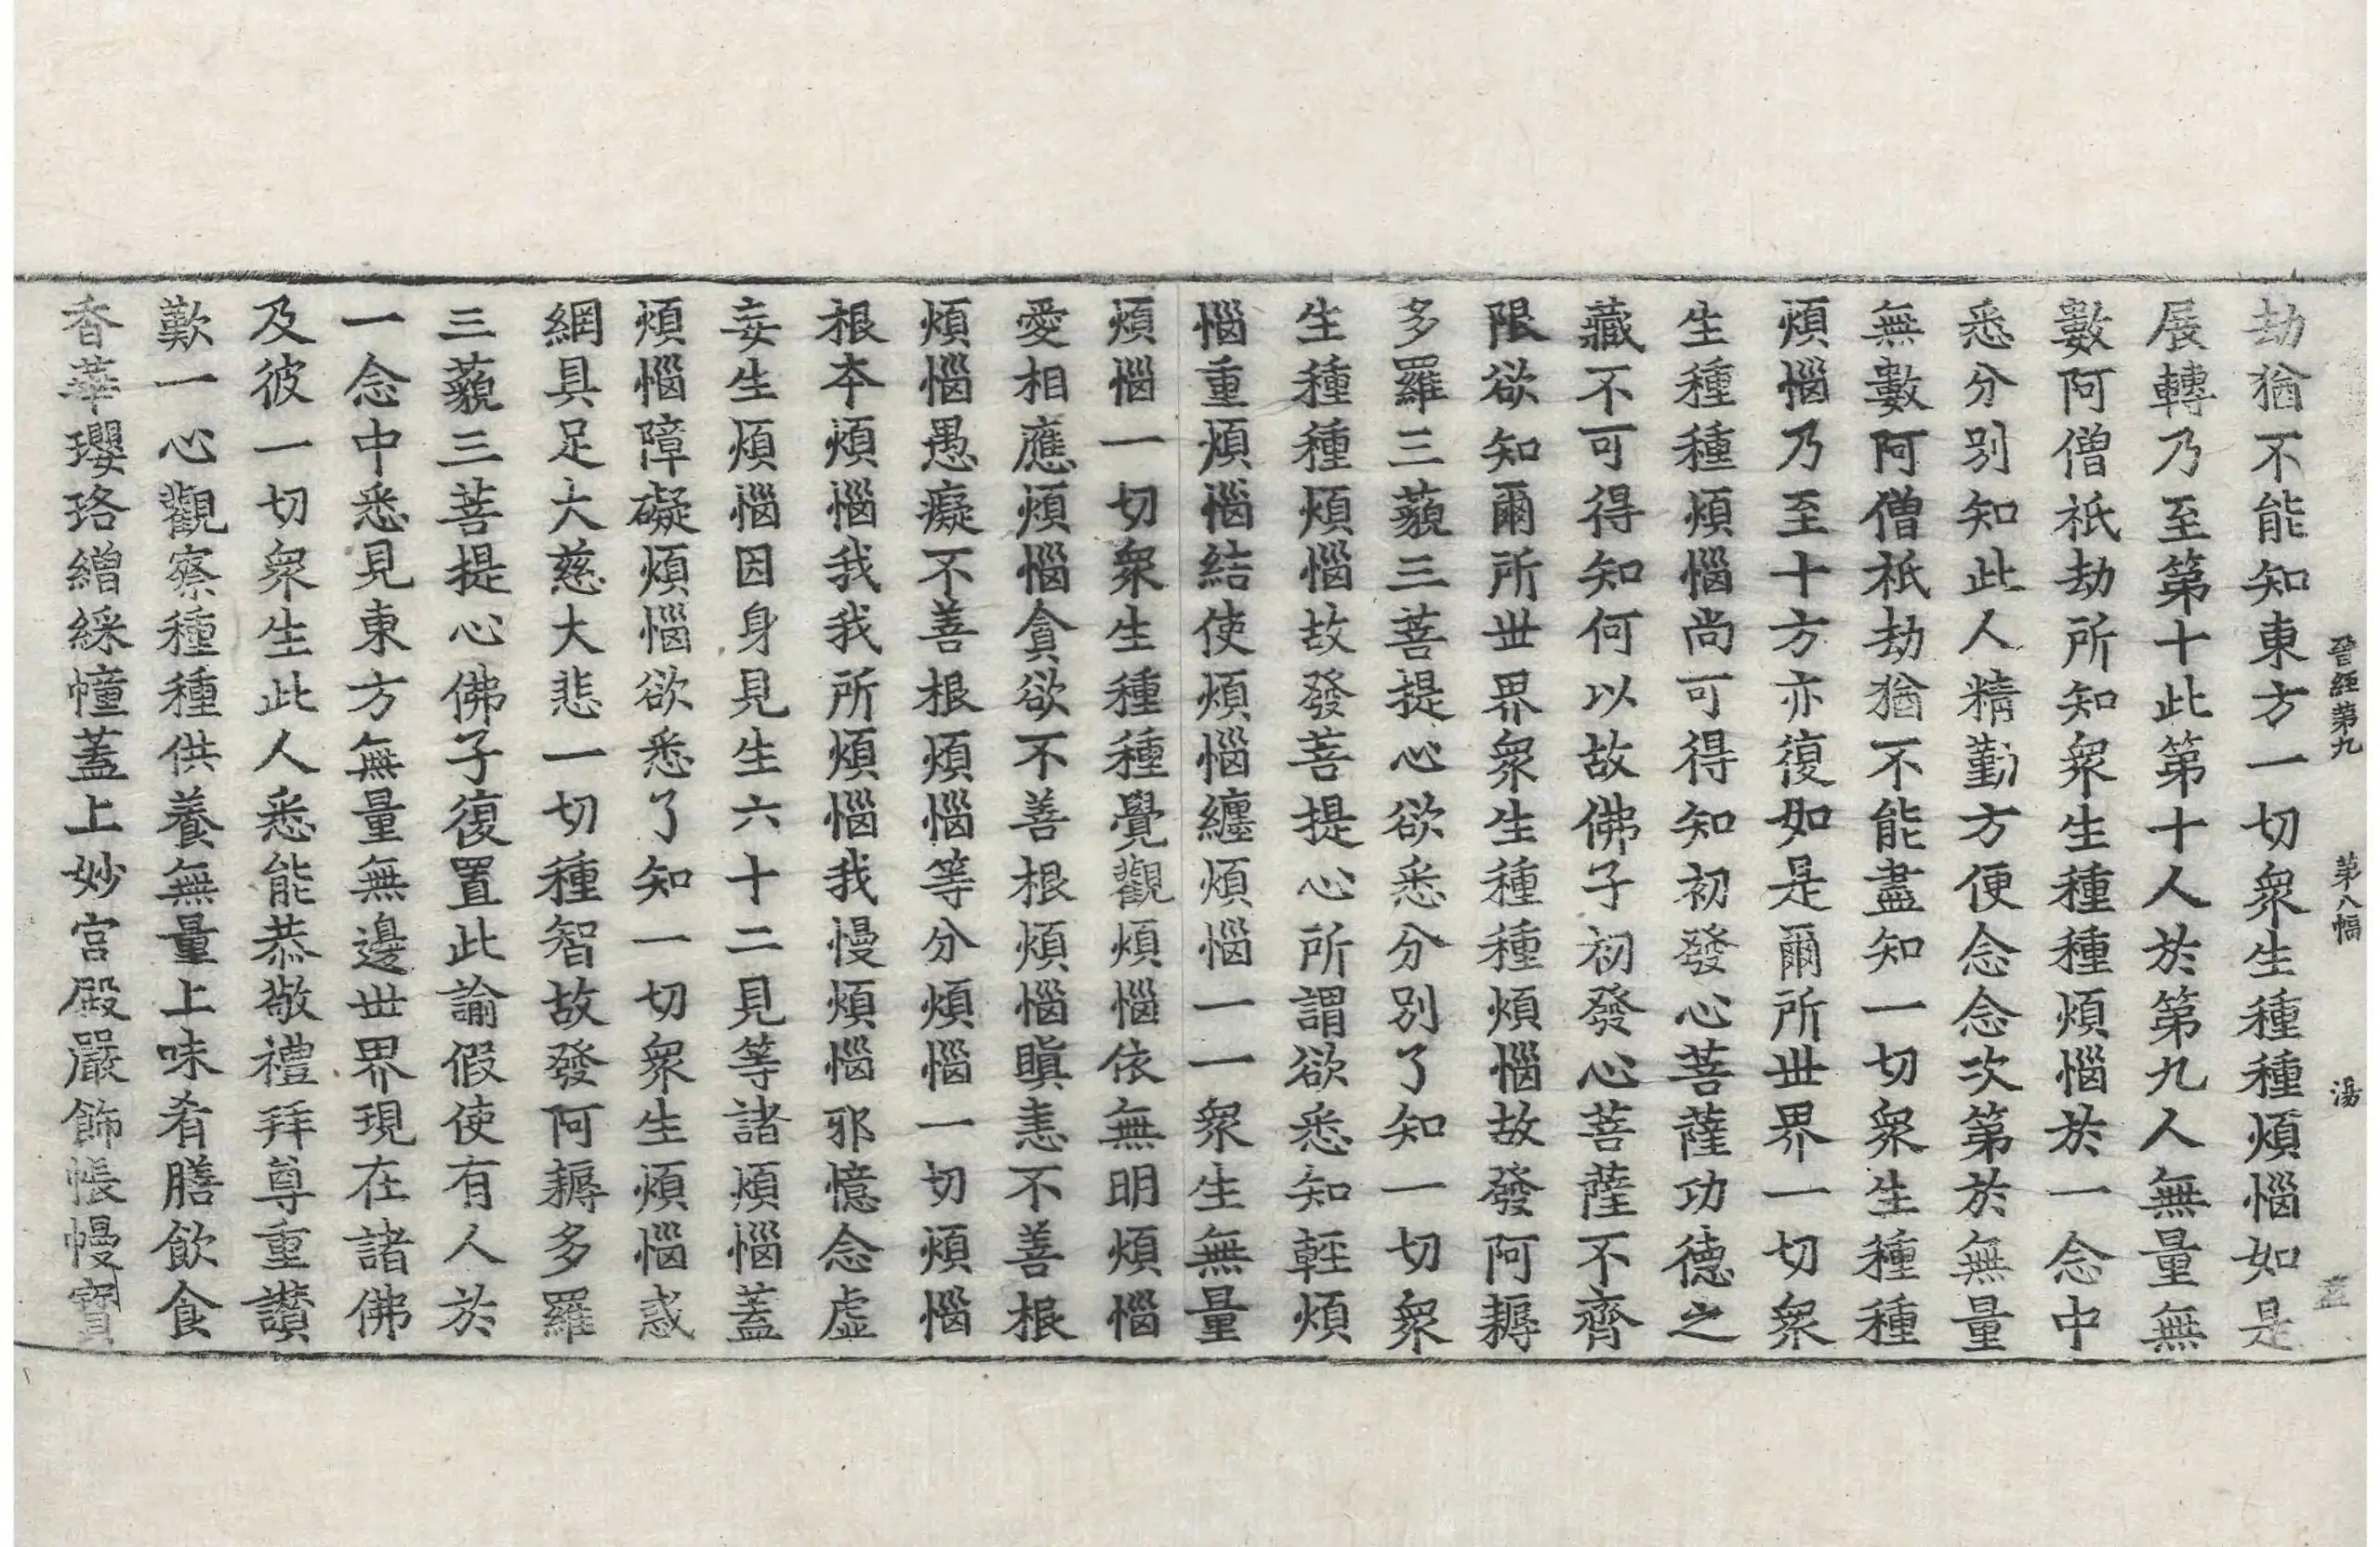 晉經第九 第八幅 湯
劫猶不能知東方一切衆生種種煩惱如是
展轉乃至第十此第十人於第九人無量無
數阿僧祇劫所知衆生種種煩惱於一念中
悉分別知此人精勤方便念念次第於無量
無數阿僧祇劫猶不能盡知一切衆生種種
煩惱乃至十方亦復如是爾所世界一切衆
生種種煩惱尚可得知初發心菩薩功德之
藏不可得知何以故佛子初發心菩薩不齊
限欲知爾所世界衆生種種煩惱故發阿耨
多羅三藐三菩提心欲悉分別了知一切衆
生種種煩惱故發菩提心所謂欲悉知輕煩
惱重煩惱結使煩惱纏煩惱一一衆生無量
煩惱一切衆生種種覺觀煩惱依無明煩惱
愛相應煩惱貪欲不善根煩惱瞋恚不善根
煩惱愚癡不善根煩惱等分煩惱一切煩惱
根本煩惱我我所煩惱我慢煩惱邪憶念虛
妄生煩惱因身見生六十二見等諸煩惱蓋
煩惱障礙煩惱欲悉了知一切衆生煩惱惑
網具足大慈大悲一切種智故發阿耨多羅
三藐三菩提心佛子復置此諭假使有人於
一念中悉見東方無量無邊世界現在諸佛
及彼一切衆生此人悉能恭敬禮拜尊重讃
歎一心觀察種種供養無量上味肴膳飲食
香華瓔珞繒綵幢蓋上妙宮殿嚴飾帳幔寶